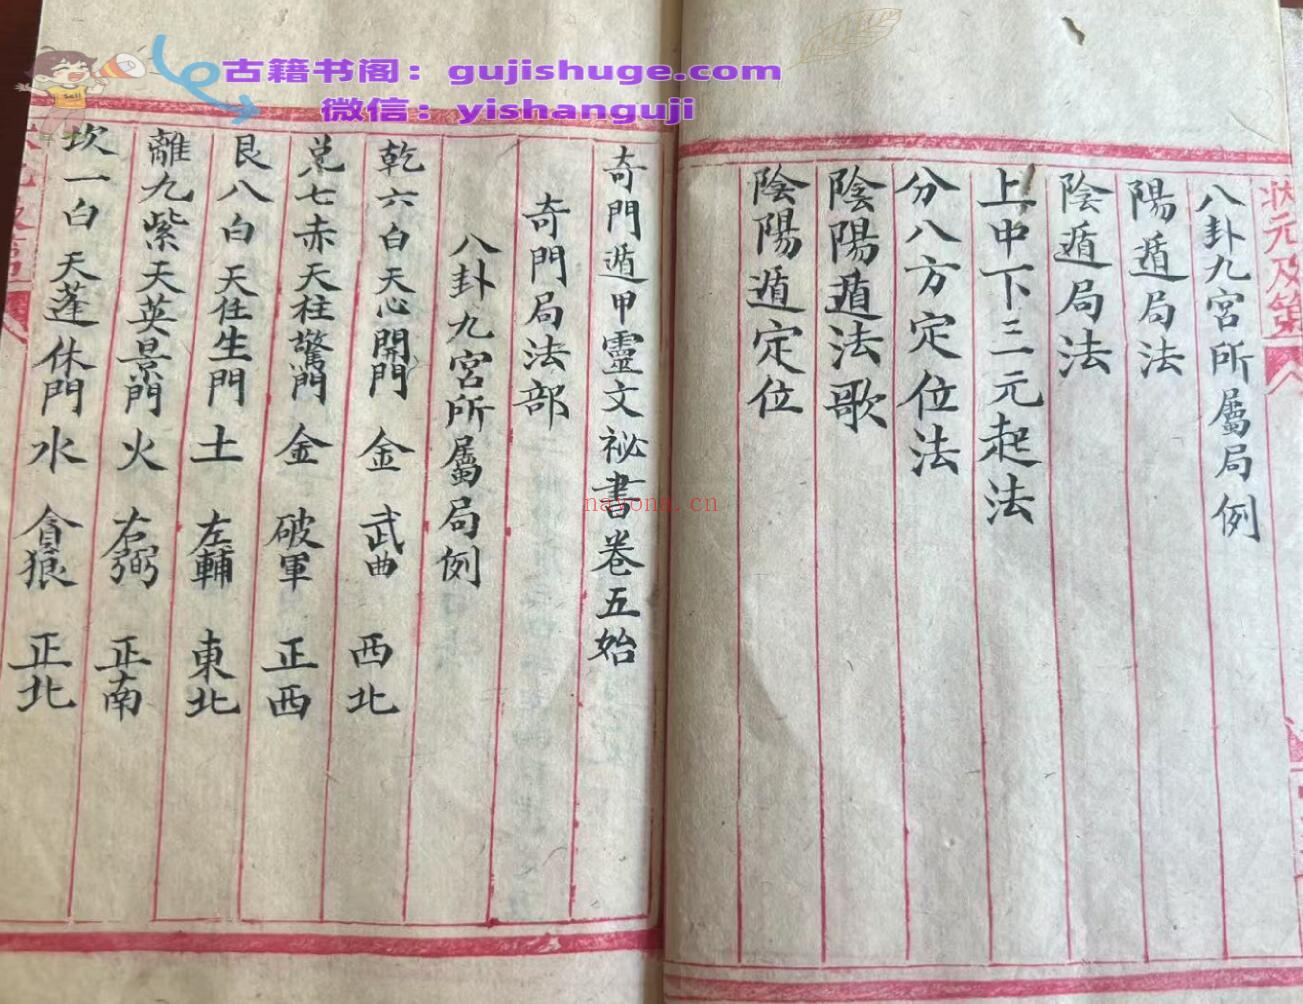 古籍书阁：gujishuge.com
微信：yishanguji
状元及第
八卦九宮所屬局例
陽遁局法
陰遁局法
上中下三元起法
分八方定位法
陰陽遁法歌
陰陽遁定位
奇門遁甲靈文祕書卷五始
奇門局法部
八卦九宮所屬局例
乾六白天心開門 金 武曲 西北
兌七赤天柱驚門 金 破軍 正西
艮八白天任生門 土 左輔 東北
離九紫天英景門 火 右弼 正南
坎一白天蓬休門 水 貪狼 正北
nayona.cn